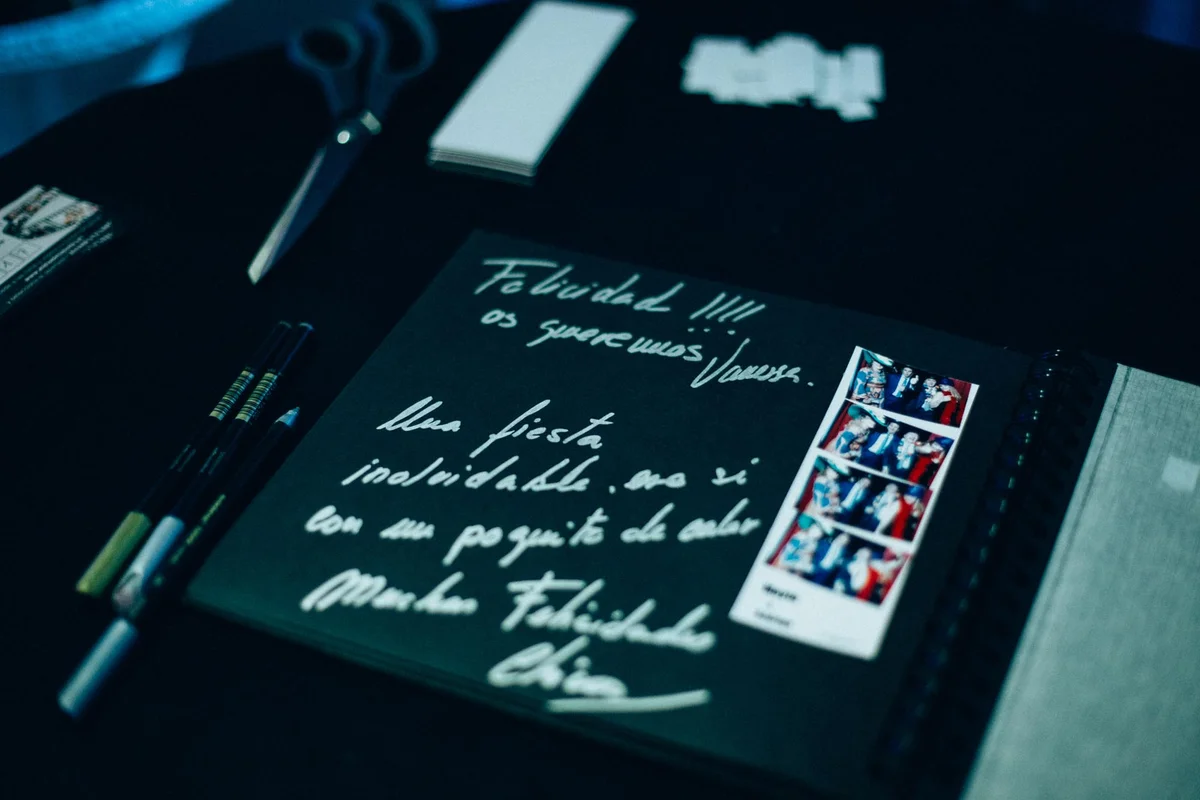 Felicidad !!!!
os queremos
Vanessa.
Una fiesta
inolvidable. eso si
con un poquito de calor
Muchas Felicidades